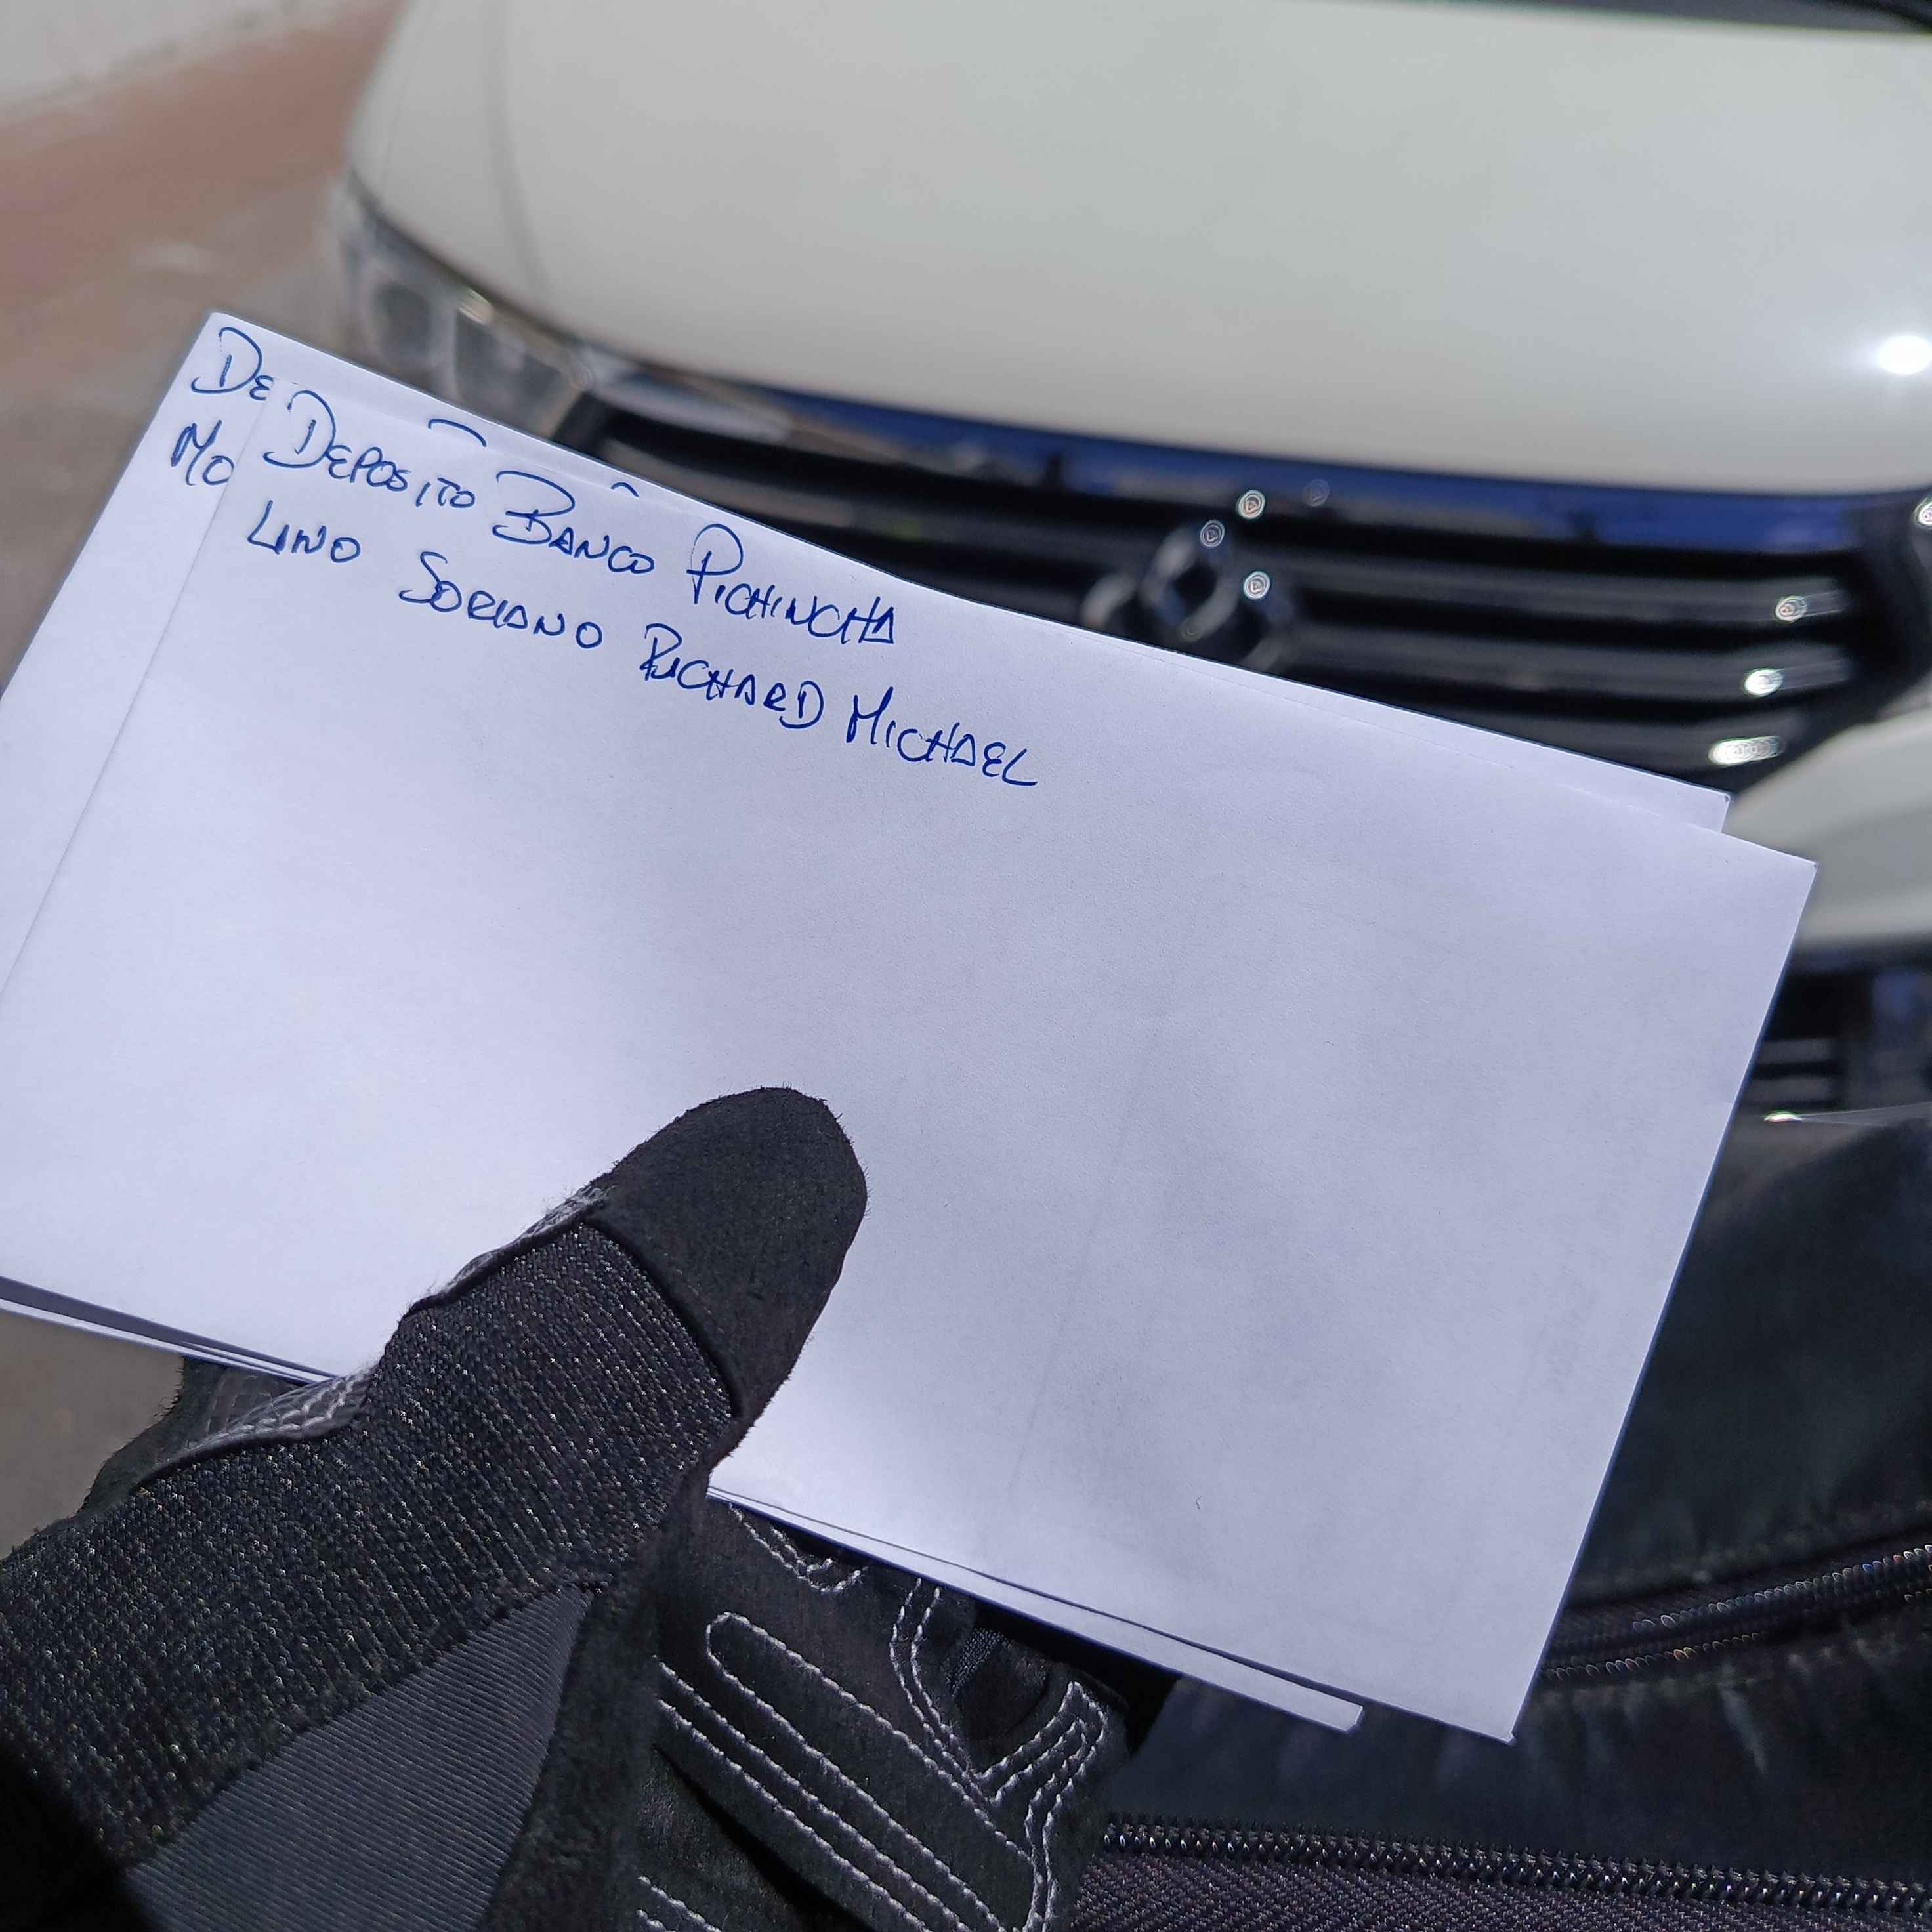 DE
MO
DEPOSITO BANCO PICHINCHA
LINO SORIANO RICHARD MICHAEL